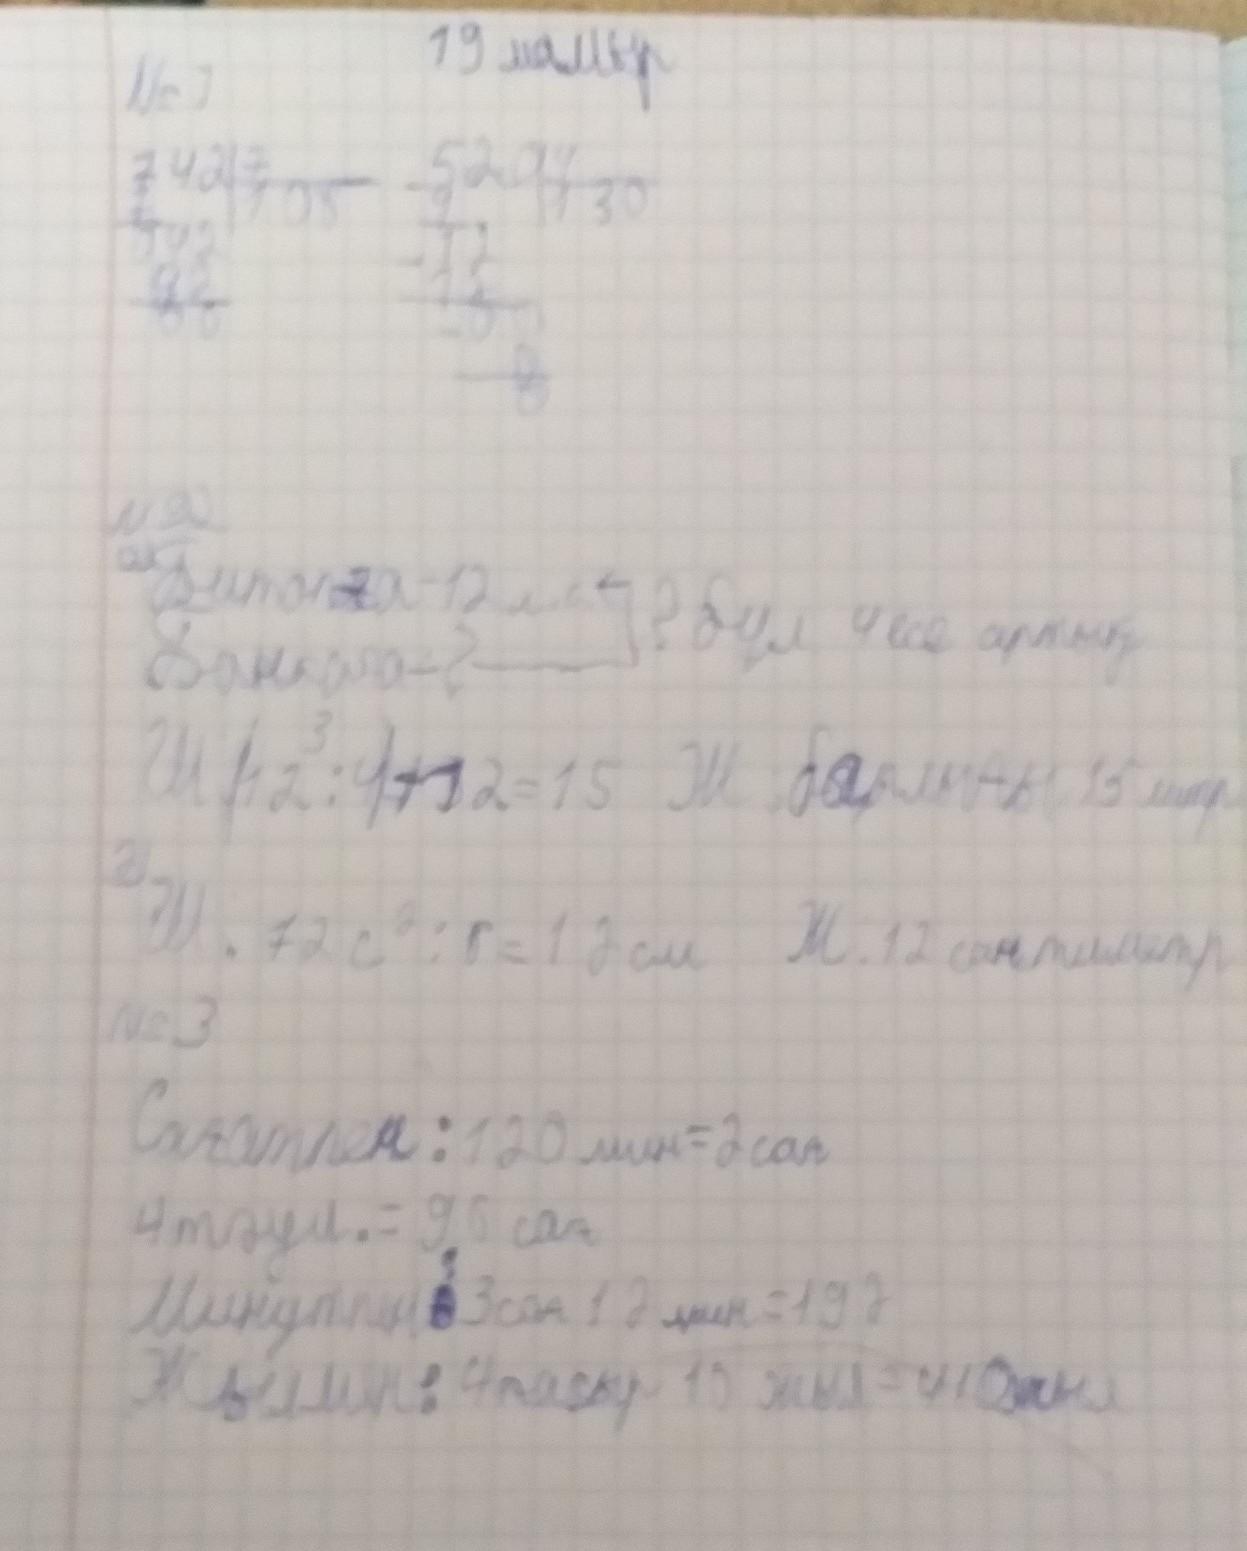 19 мамыр
№1
742 7 520 4
7 106 4 130
042 12
42 12
00 0
0
№2
Битонга - 12 л ? бул 4 есе артық
Банкаға - ?
Ш 12:4+12=15 Ж барлығы 15 литр
2)
Ш. 72 с² : 6 = 12 см Ж. 12 сантиметр
№3
Сағатпен: 120 мин = 2 сағ
4 тәул. = 96 сағ
Минутпен: 3 сағ 12 мин = 192
Жылмен: 4 ғасыр 10 жыл = 410 жыл